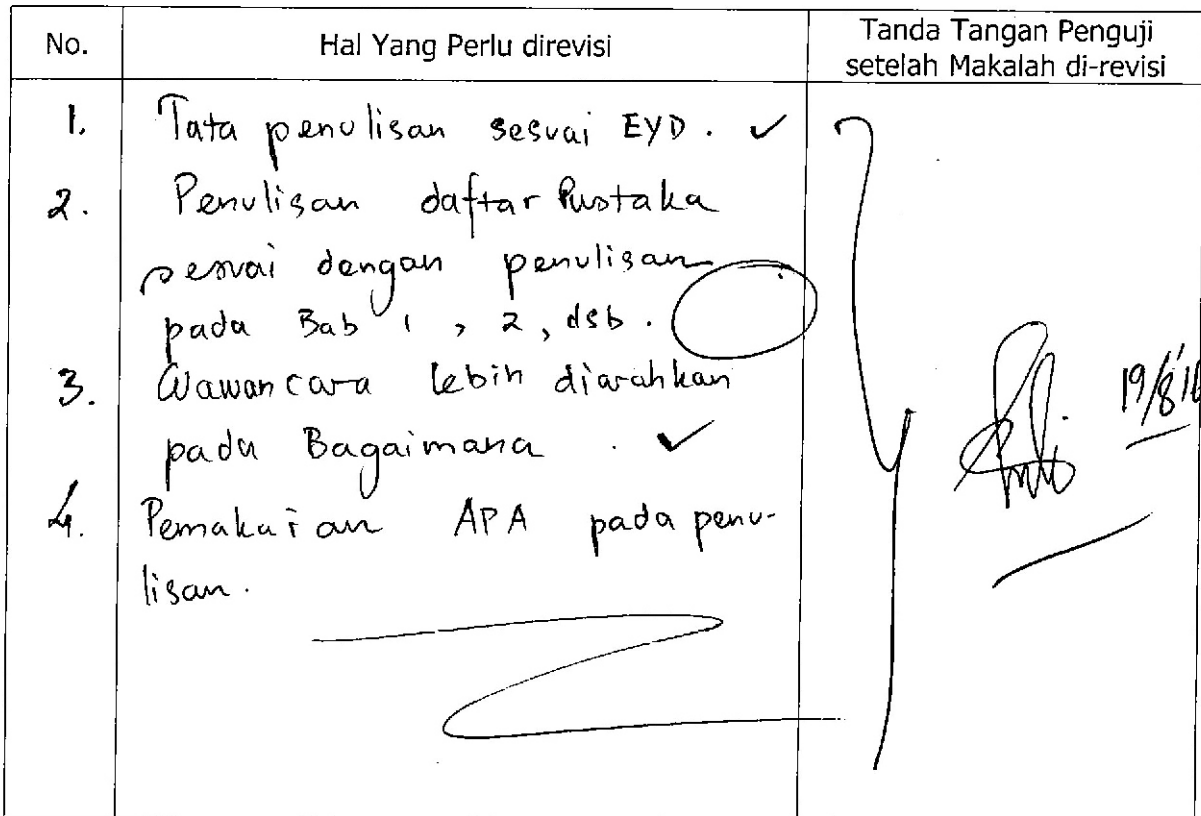 No.
Hal Yang Perlu direvisi
Tanda Tangan Penguji
setelah Makalah di-revisi
1. Tata penulisan sesuai EYD. ✓
2. Penulisan daftar Pustaka
sesuai dengan penulisan
pada Bab 1, 2, dsb.
3. Wawancara lebih diarahkan
pada Bagaimana. ✓
4. Pemakaian APA pada penu-
lisan.
19/8'16